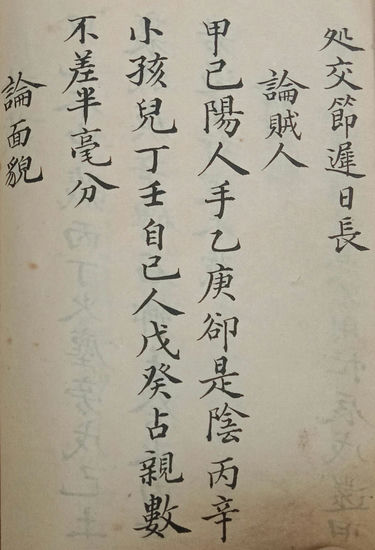 处交節遲日長
論賊人
甲己陽人手乙庚卻是陰丙辛
小孩兒丁壬自己人戊癸占親數
不差半毫分
論面貌